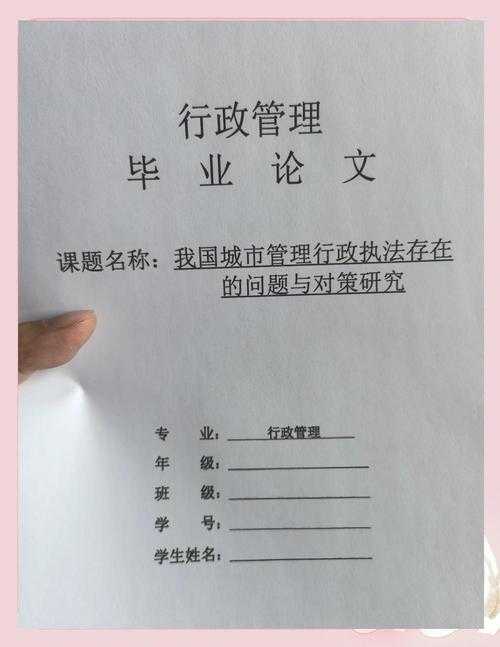 行政管理
毕 业 论 文
课题名称：我国城市管理行政执法存在
的问题与对策研究
专 业：行政管理
年 级：
班 级：
学 号：
学生姓名：